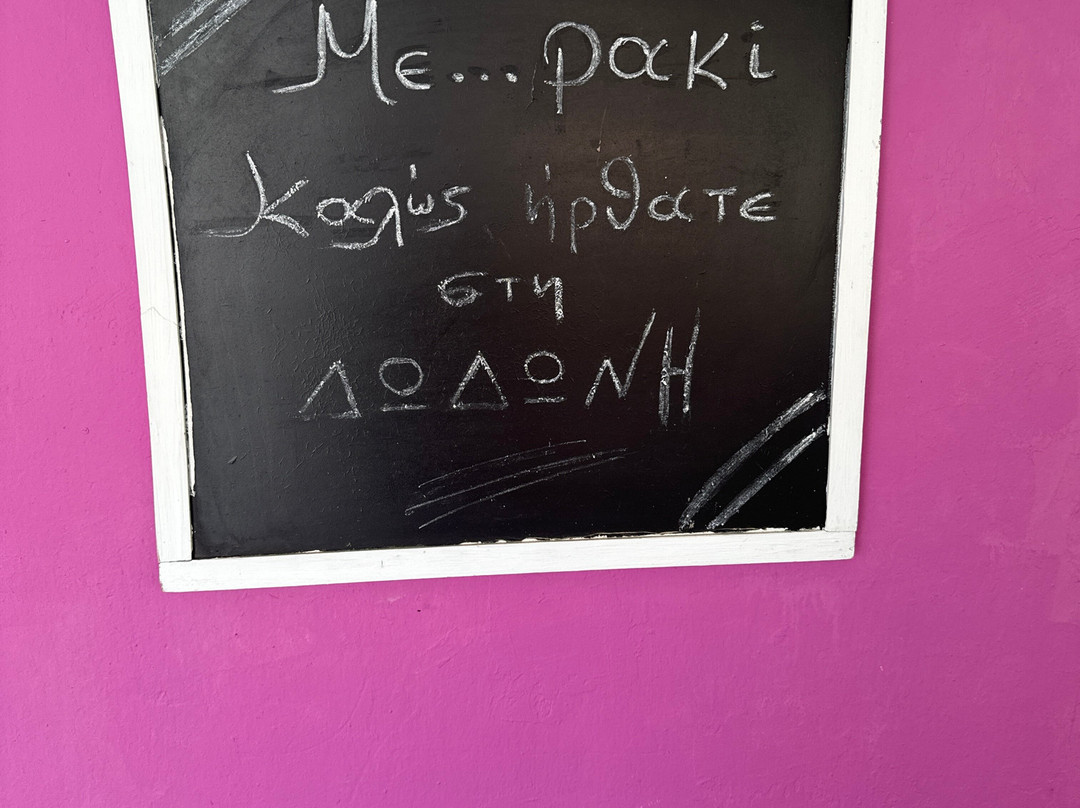 Με... ρακί
καλώς ήρθατε
στη
ΔΩΔΩΝΗ